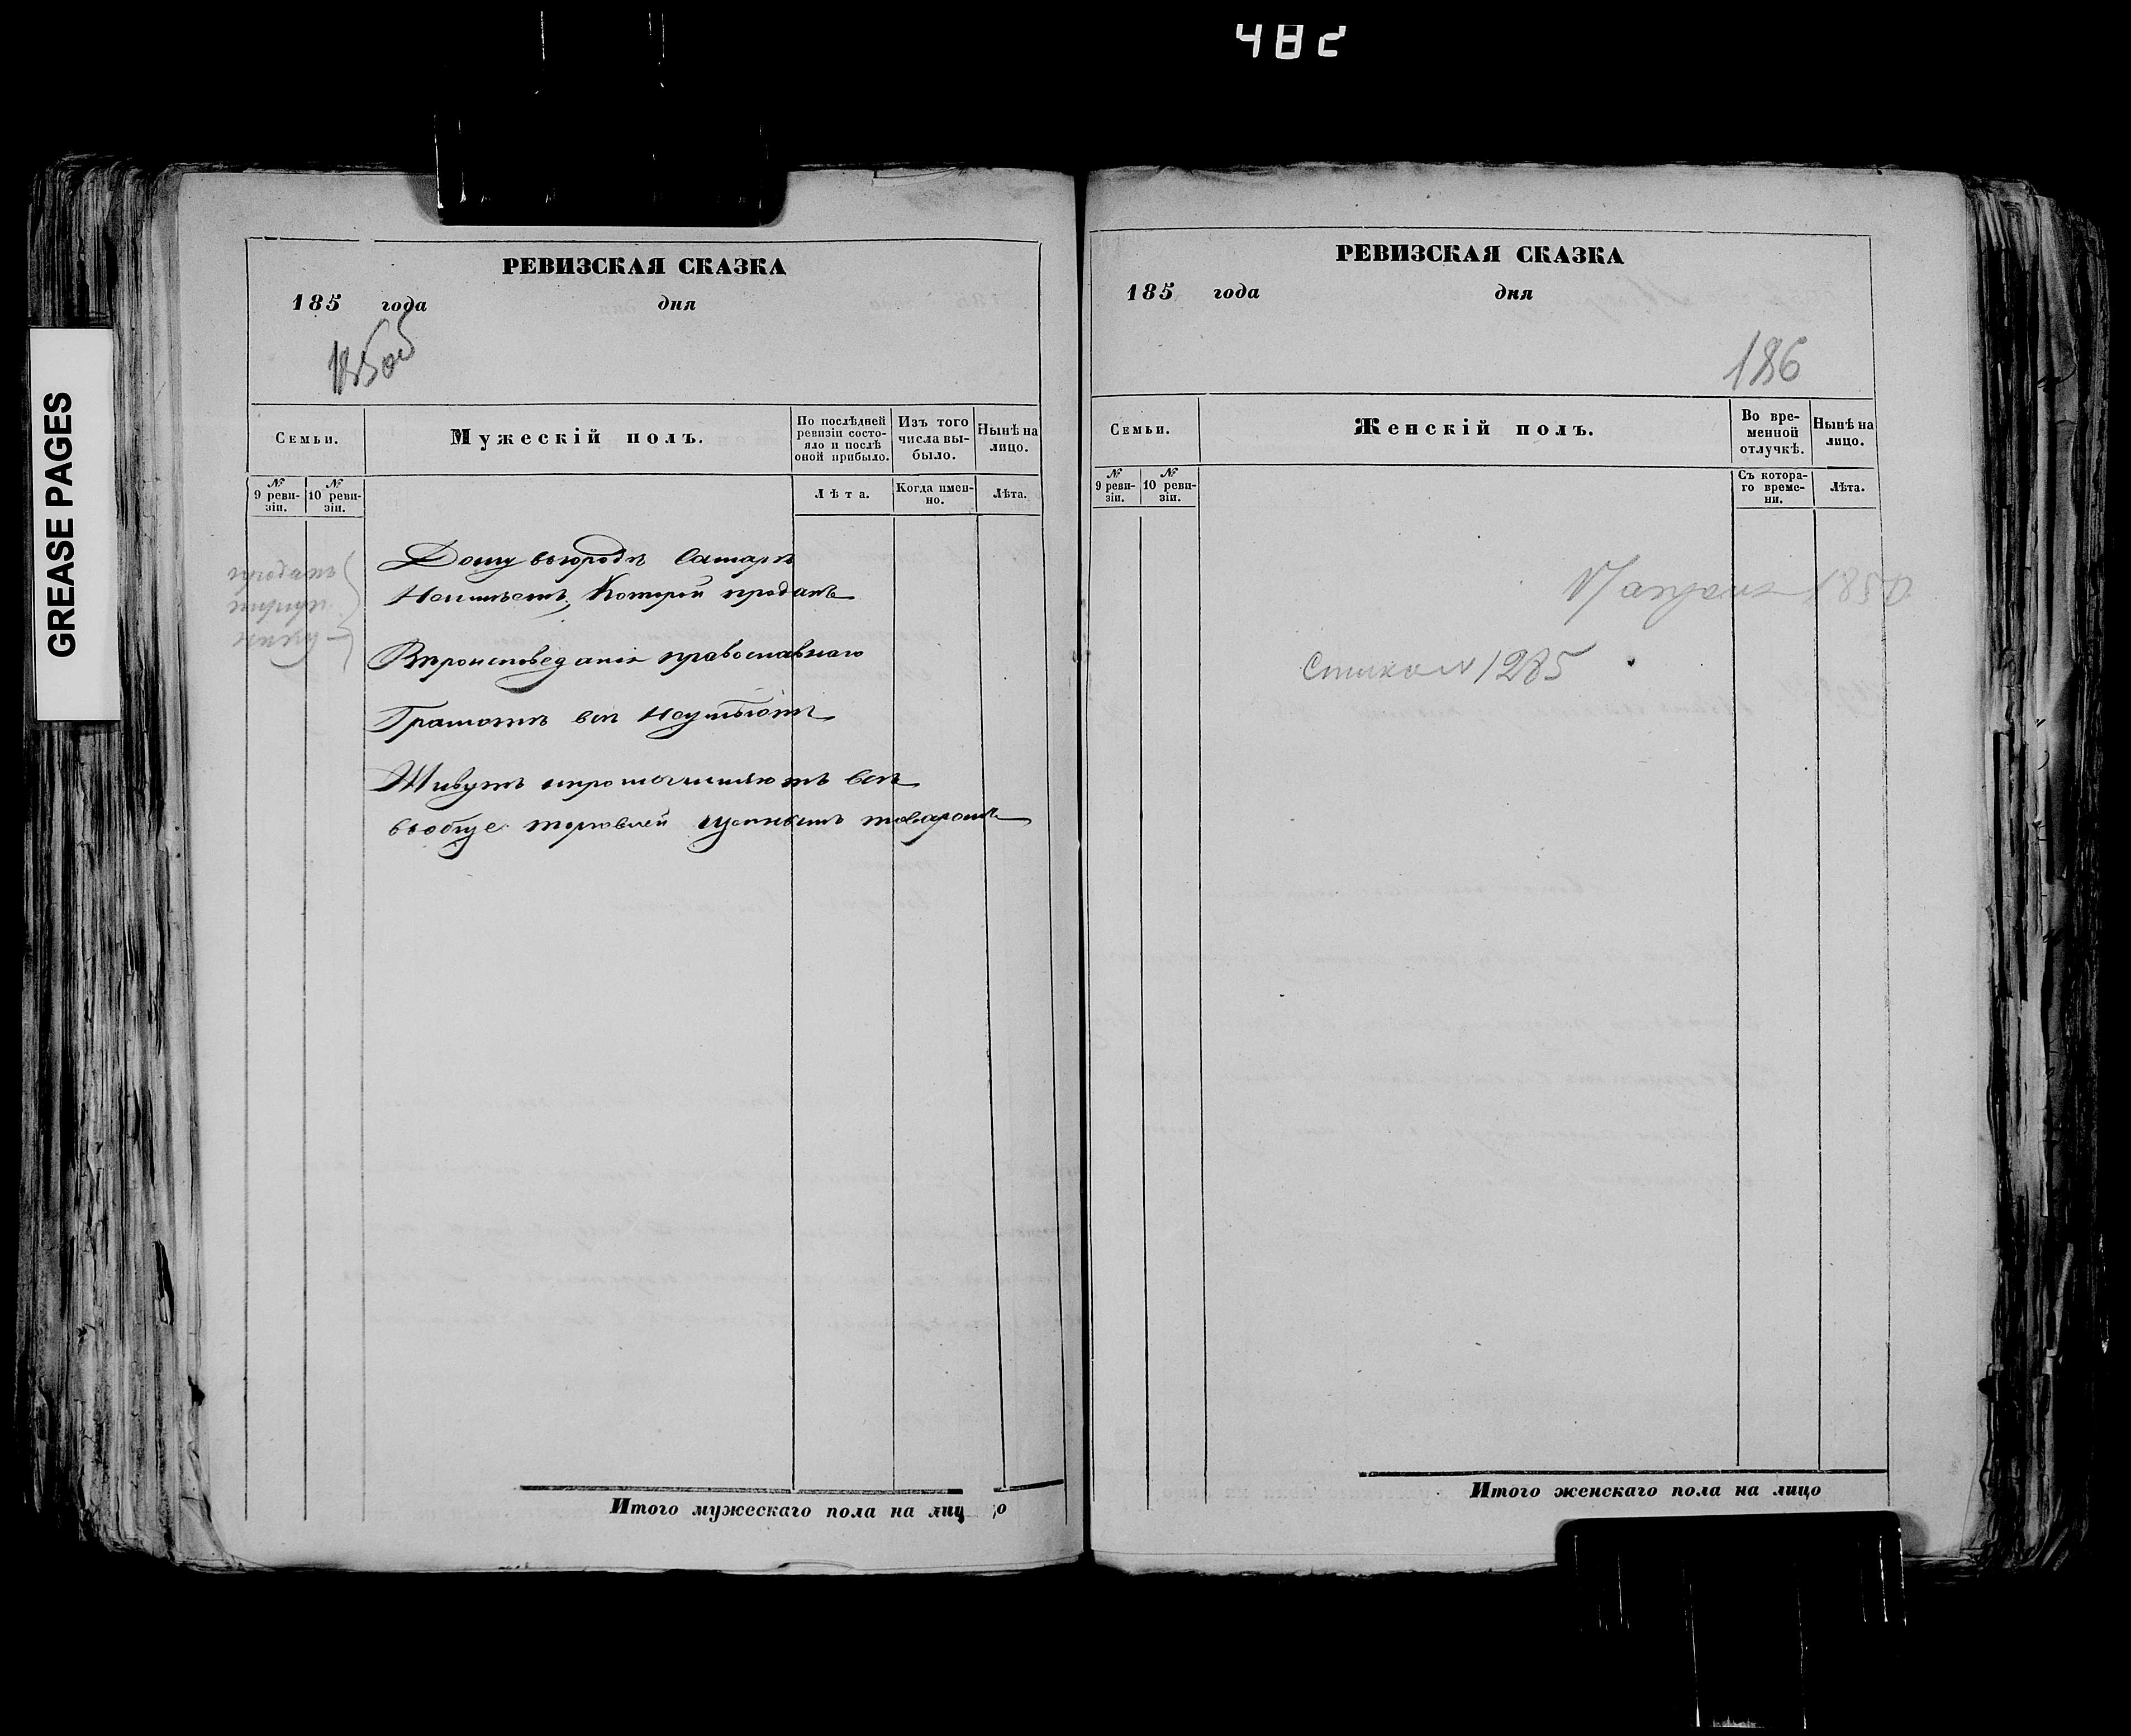 482
GREASE PAGES
РЕВИЗСКАЯ СКАЗКА
185 года дня
185об
Семьи.
Мужескій полъ.
По послѣдней ревизіи состояло и послѣ оной прибыло.
Изъ того числа выбыло.
Нынѣ на лицо.
№ 9 ревизіи.
№ 10 ревизіи.
Лѣта.
Когда именно.
Лѣта.
Дому вгородѣ Самарѣ
Неимѣетъ, Которой проданъ
Вѣроисповеданія православнаго
Грамотѣ всѣ Неумѣютъ
Живутъ ипромышляютъ всѣ
вообще торговлей
товаромъ
Итого мужескаго пола на лицо
РЕВИЗСКАЯ СКАЗКА
185 года дня
186
Семьи.
Женскій полъ.
Во временной отлучкѣ.
Нынѣ на лицо.
№ 9 ревизіи.
№ 10 ревизіи.
Съ котораго времени.
Лѣта.
1850
1285
Итого женскаго пола на лицо